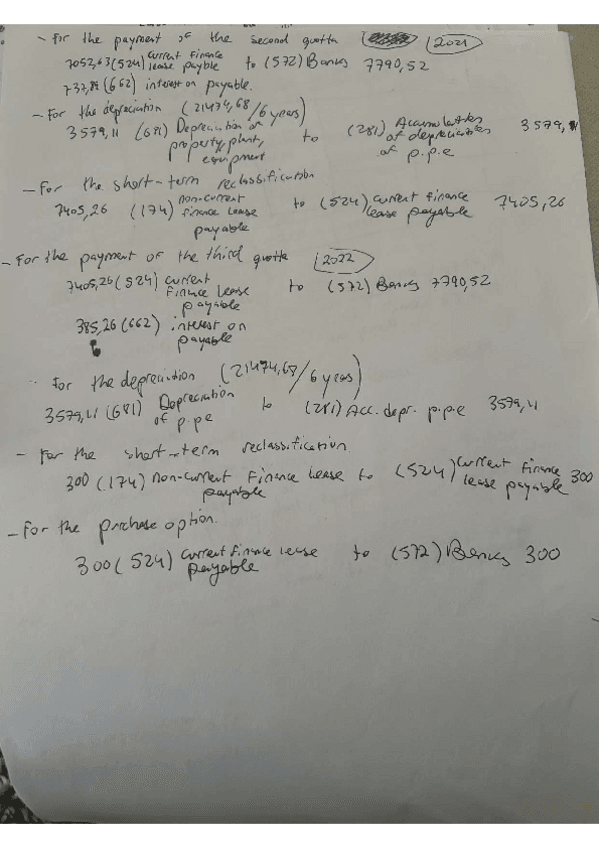 - For the payment of the second quotta (2021)
7052,63 (524) current finance lease payble to (572) Banks 7790,52
737,89 (662) interest on payable.
- For the depreciation (21474,68/6 years)
3579,11 (681) Depreciation of property, plant, equipment to (281) Accumulates of depreciables of p.p.e 3579,11
- For the short-term reclassification
7405,26 (174) non-current finance lease payable to (524) current finance lease payable 7405,26
- For the payment of the third quotta (2022)
7405,26 (524) current finance lease payable to (572) Banks 7790,52
385,26 (662) interest on payable
- For the depreciation (21474,68/6 years)
3579,11 (681) Depreciation of p.pe to (281) Acc. depr. p.p.e 3579,11
- For the short-term reclassification.
300 (174) non-current Finance Lease payable to (524) current finance lease payable 300
- For the prchase option.
300 (524) current finance lease payable to (572) Banks 300